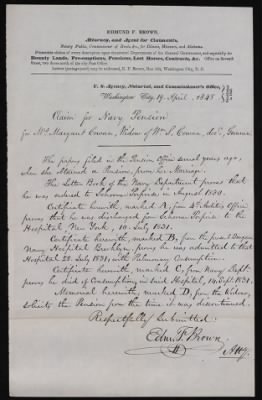 EDMUND F. BROWN,
Attorney, and Agent for Claimants,
Notary Public, Commissioner of Deeds, &c., for Illinois, Missouri, and Alabama.
Prosecutes claims of every description upon Government and especially for
Bounty Lands, Pre-emptions, Pensions, Lost Horses, Contracts, &c. Office on Seventh
Street, two doors north of the city Post Office.
Letters (postage paid) may be addressed, E. F. Brown, Box Washington City, D. C.
U. S. Agency, Notarial, and Commissioner's Office,
Washington City, 19. April. 1848
Claim for Navy Pension
for Mrs Margaret Cowan, Widow of Wm S. Cowan, decd, Gunner.
The papers filed in the Pension Office several years ago,
when she obtained a Pension, prove her Marriage.
The Letter Book of the Navy Department proves that
he was ordered to in August 1830.
Certificate herewith, marked A, from 4th Aud's Office
proves that he was discharged from to the
Hospital, New York, 10. July 1831.
Certificate herewith, marked B, from the present Surgeon
Navy Hospital Brooklyn, proves he was admitted to that
Hospital 22 July 1831, with Pulmonary Consumption.
Certificate herewith, marked C, from Navy Dept.
proves he died of Consumption in said Hospital, 14. Sept. 1831.
Memorial herewith, marked D, from the Widow,
solicits the Pension from the time it was discontinued.
Respectfully Submitted.
Edm F. Brown
Atty.